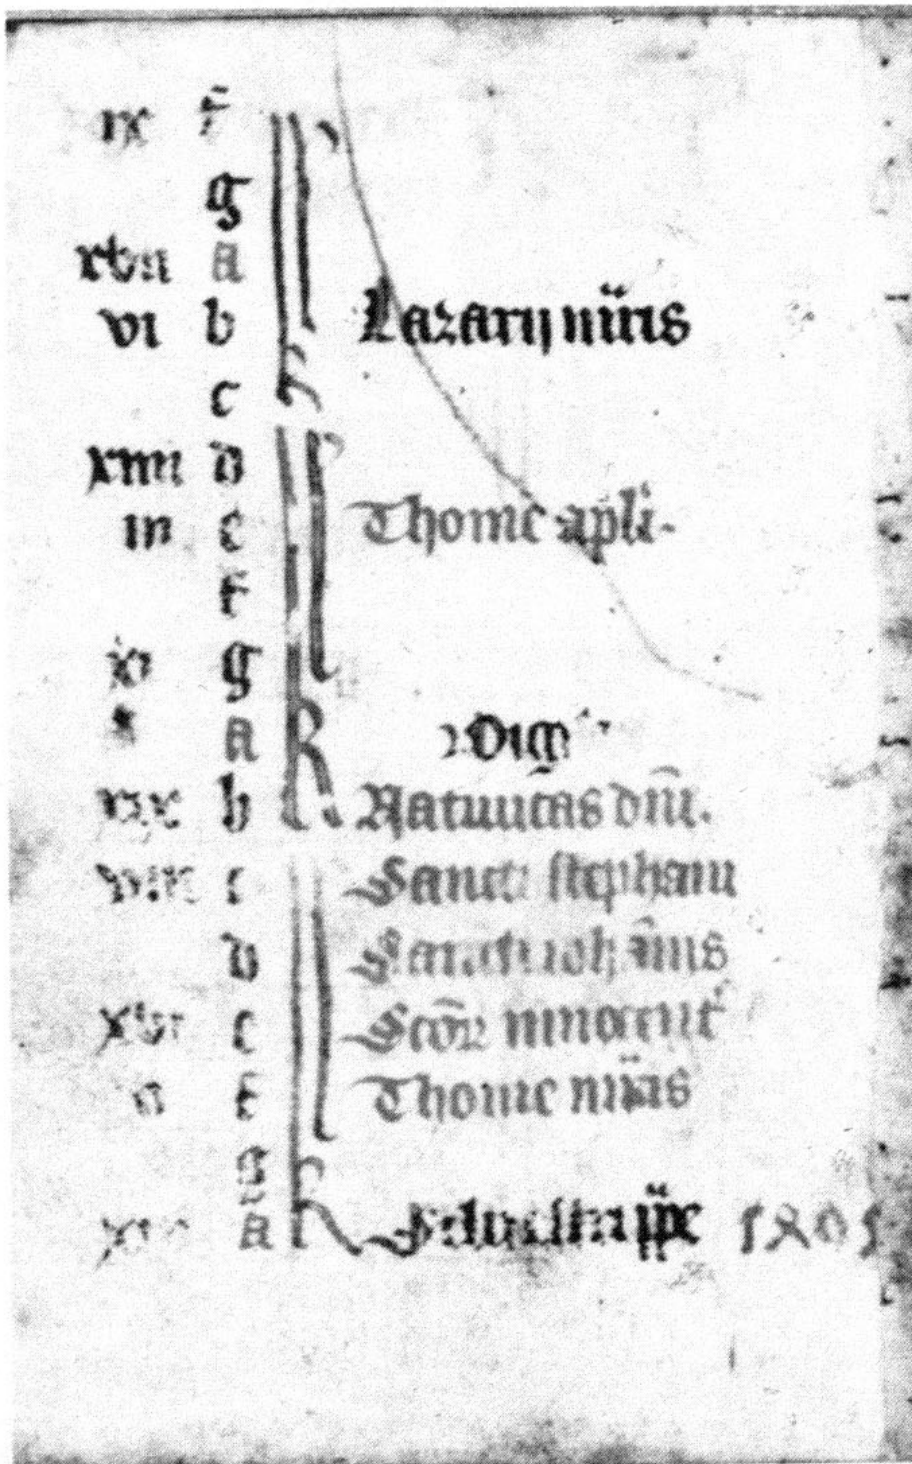 ix f
g
xvii a
vi b Lazarij mr̃is
c
xiiii d
iii e Thome apl̃i.
f
xi g
a Vigĩ
b Natiuitas dñi.
viii c Sancti stephani
d Sancti iohãnis
xvi e Sctõꝝ innocent̃
v f Thome mr̃is
g
a Siluestri pp̃e